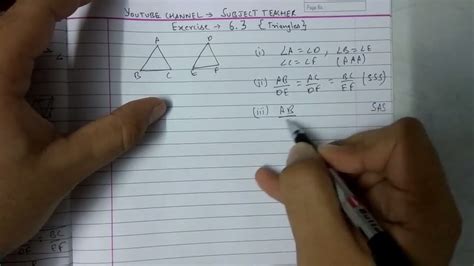 YOUTUBE CHANNEL → SUBJECT TEACHER
Exercise - 6.3 {Triangles}
A
B C
D
E F
(i) ∠A = ∠D , ∠B = ∠E
∠C = ∠F (AAA)
(ii) AB/DE = AC/DF = BC/EF (SSS)
(iii) AB SAS
= BC
DE EF